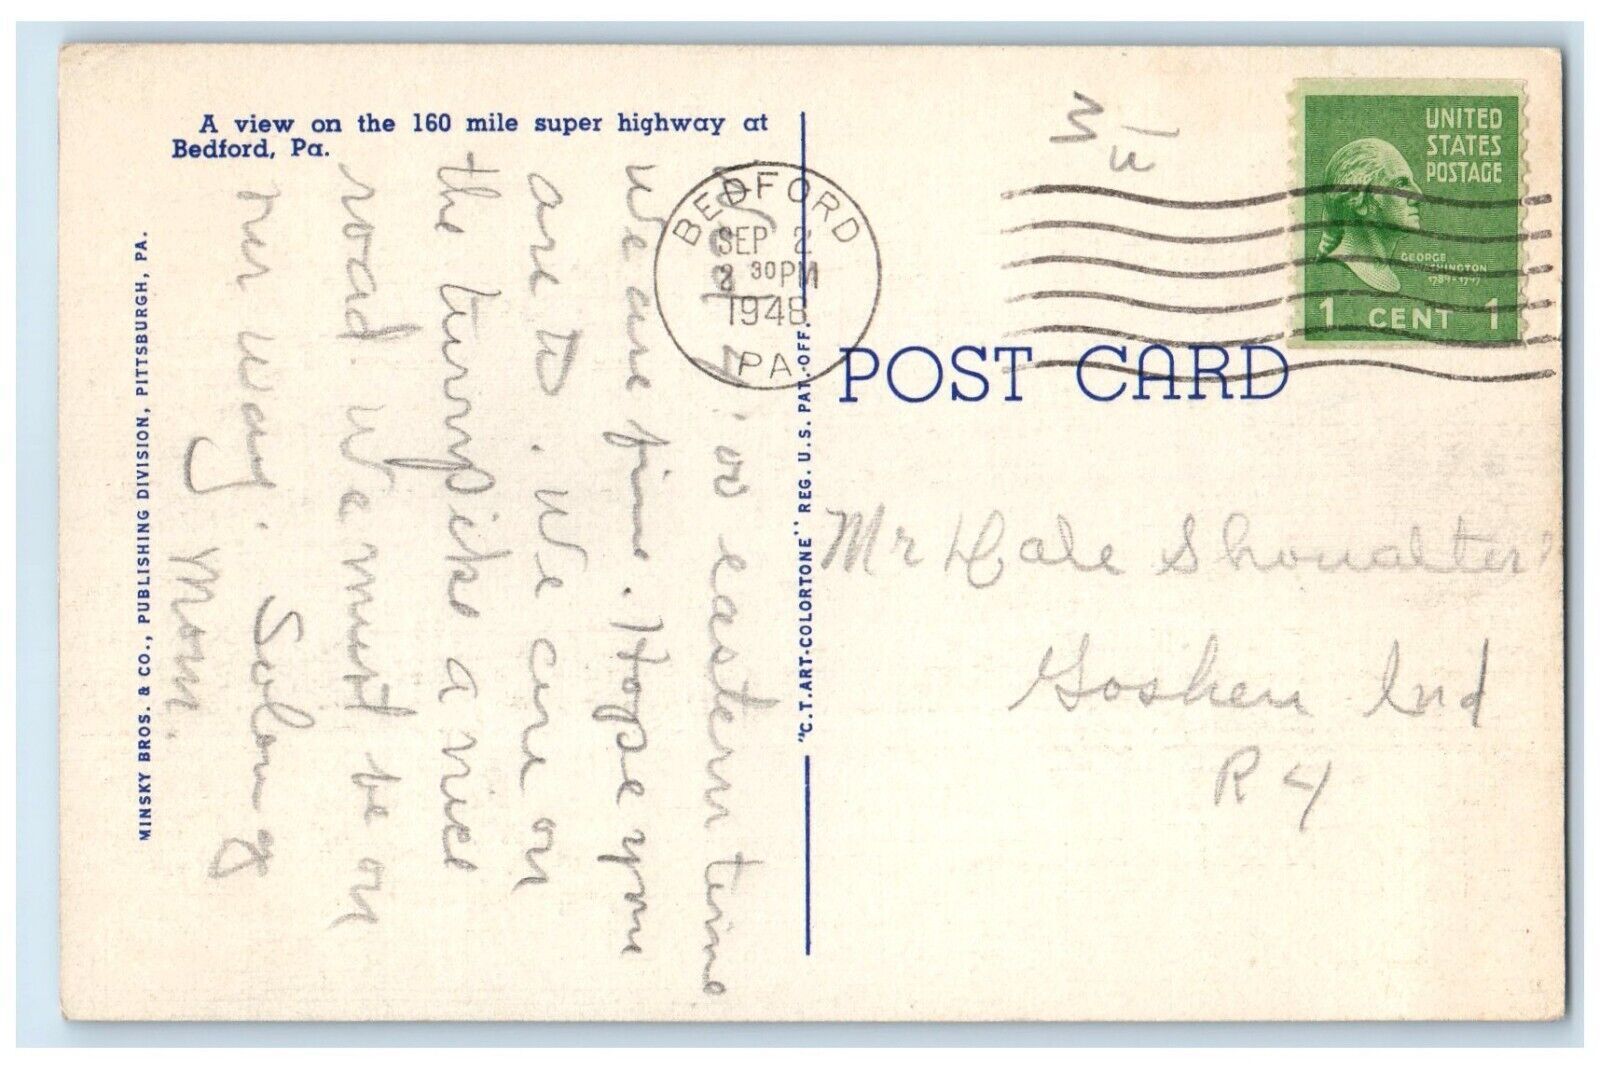 A view on the 160 mile super highway at
Bedford, Pa.
MINSKY BROS. & CO., PUBLISHING DIVISION, PITTSBURGH, PA.
"C.T. ART-COLORTONE" REG. U.S. PAT. OFF.
BEDFORD
SEP 2
2 30 PM
1948
PA.
UNITED
STATES
POSTAGE
GEORGE
WASHINGTON
1789-1797
1 CENT 1
POST CARD
Mr Dale Showalter
Goshen Ind
R 4
eastern time
We are fine. Hope you
are to. We are on
the turnpike a nice
road. We must be on
our way. So long
Mom.